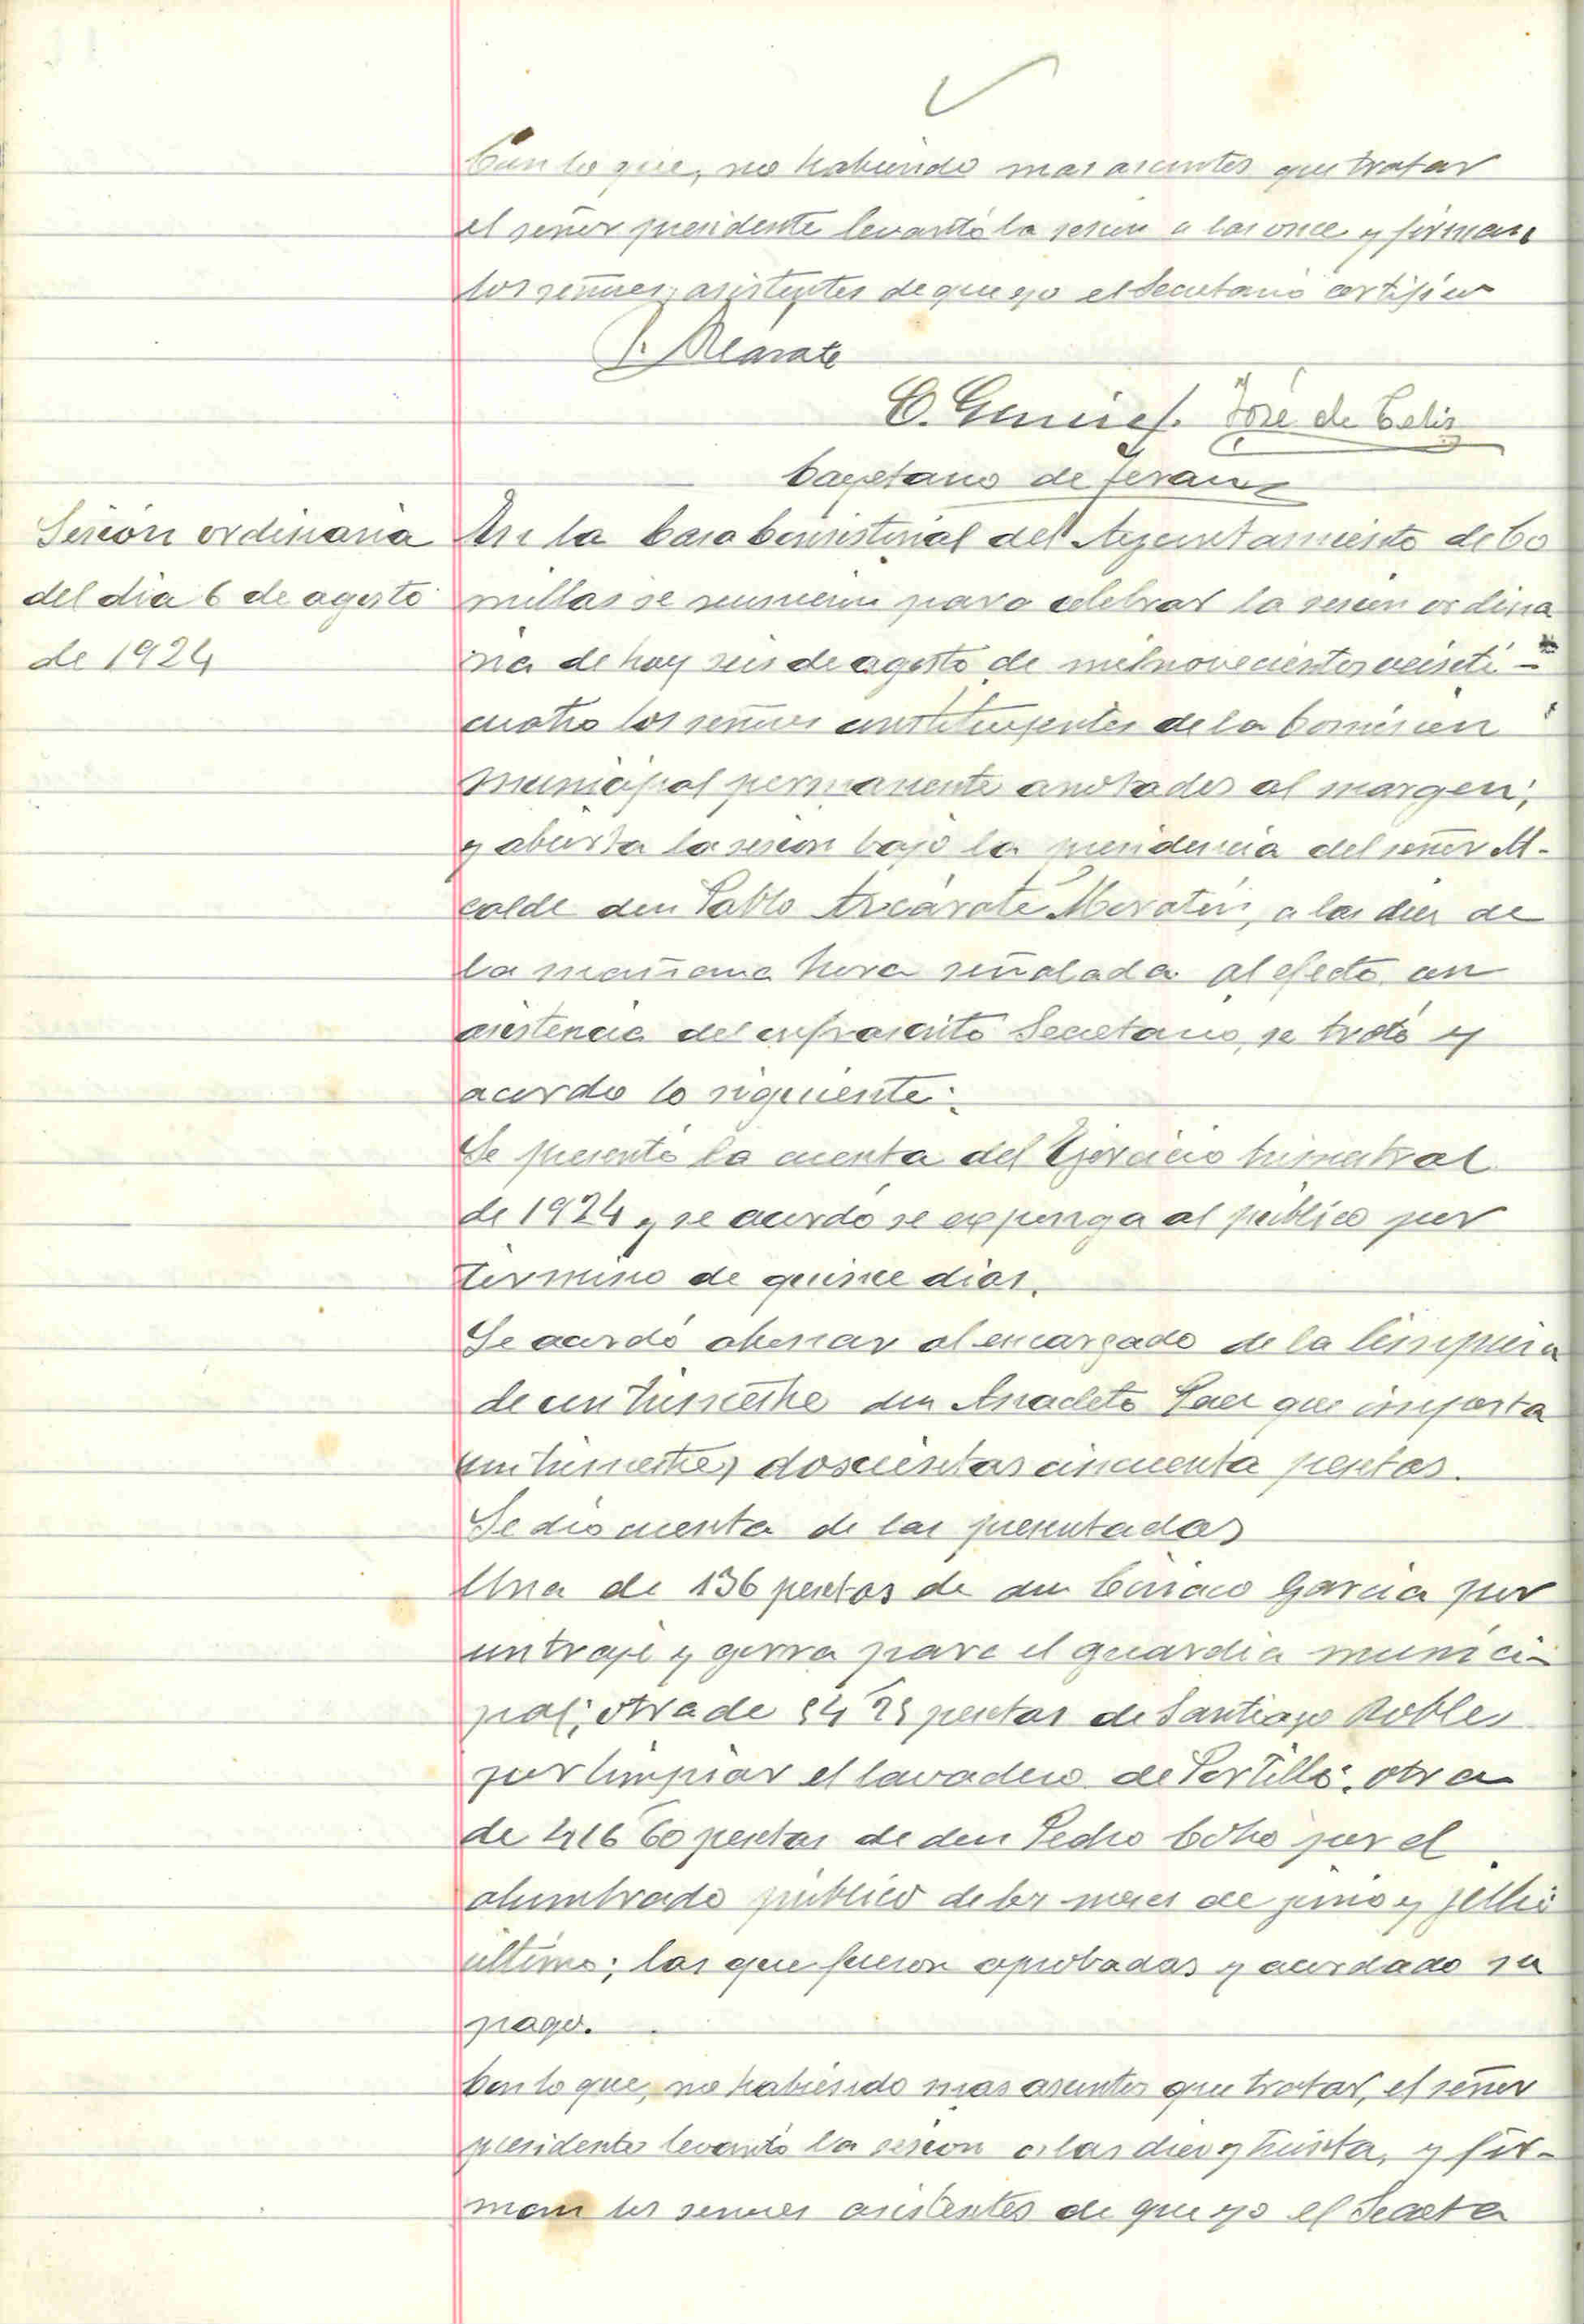 Con lo que, no habiendo mas asuntos que tratar
el señor presidente levantó la sesion a las once y firman
los señores asistentes de que yo el Secretario certifico
José de Celis
Cayetano de
Sesión ordinaria
del dia 6 de agosto
de 1924
En la Casa Consistorial del Ayuntamiento de Co
millas se reunieron para celebrar la sesion ordina
ria de hoy seis de agosto de mil novecientos veinti-
cuatro los señores constituyentes de la Comision
municipal permanente anotados al margen;
y abierta la sesion bajo la presidencia del señor Al-
calde don Pablo Azcárate Moratin, a las diez de
la mañana hora señalada al efecto con
asistencia del infrascrito Secretario, se trató y
acordo lo siguiente:
Se presentó la cuenta del Ejercicio trimestral
de 1924 y se acordó se exponga al público por
termino de quince dias.
Se acordó abonar al encargado de la limpieza
de un trimestre don Anacleto que importa
un trimestre, doscientas cincuenta pesetas.
Se dio cuenta de las presentadas
Una de 136 pesetas de don Ciriaco Garcia por
un traje y gorra para el guardia munici-
pal; otra de pesetas de Santiago Robles
por limpiar el lavadero de Portillo; otra
de 416 60 pesetas de don Pedro por el
alumbrado público de los meses de junio y julio
último; las que fueron aprobadas y acordado su
pago.
Con lo que, no habiendo mas asuntos que tratar, el señor
presidente levantó la sesion a las diez y treinta, y fir-
man los señores asistentes de que yo el Secreta